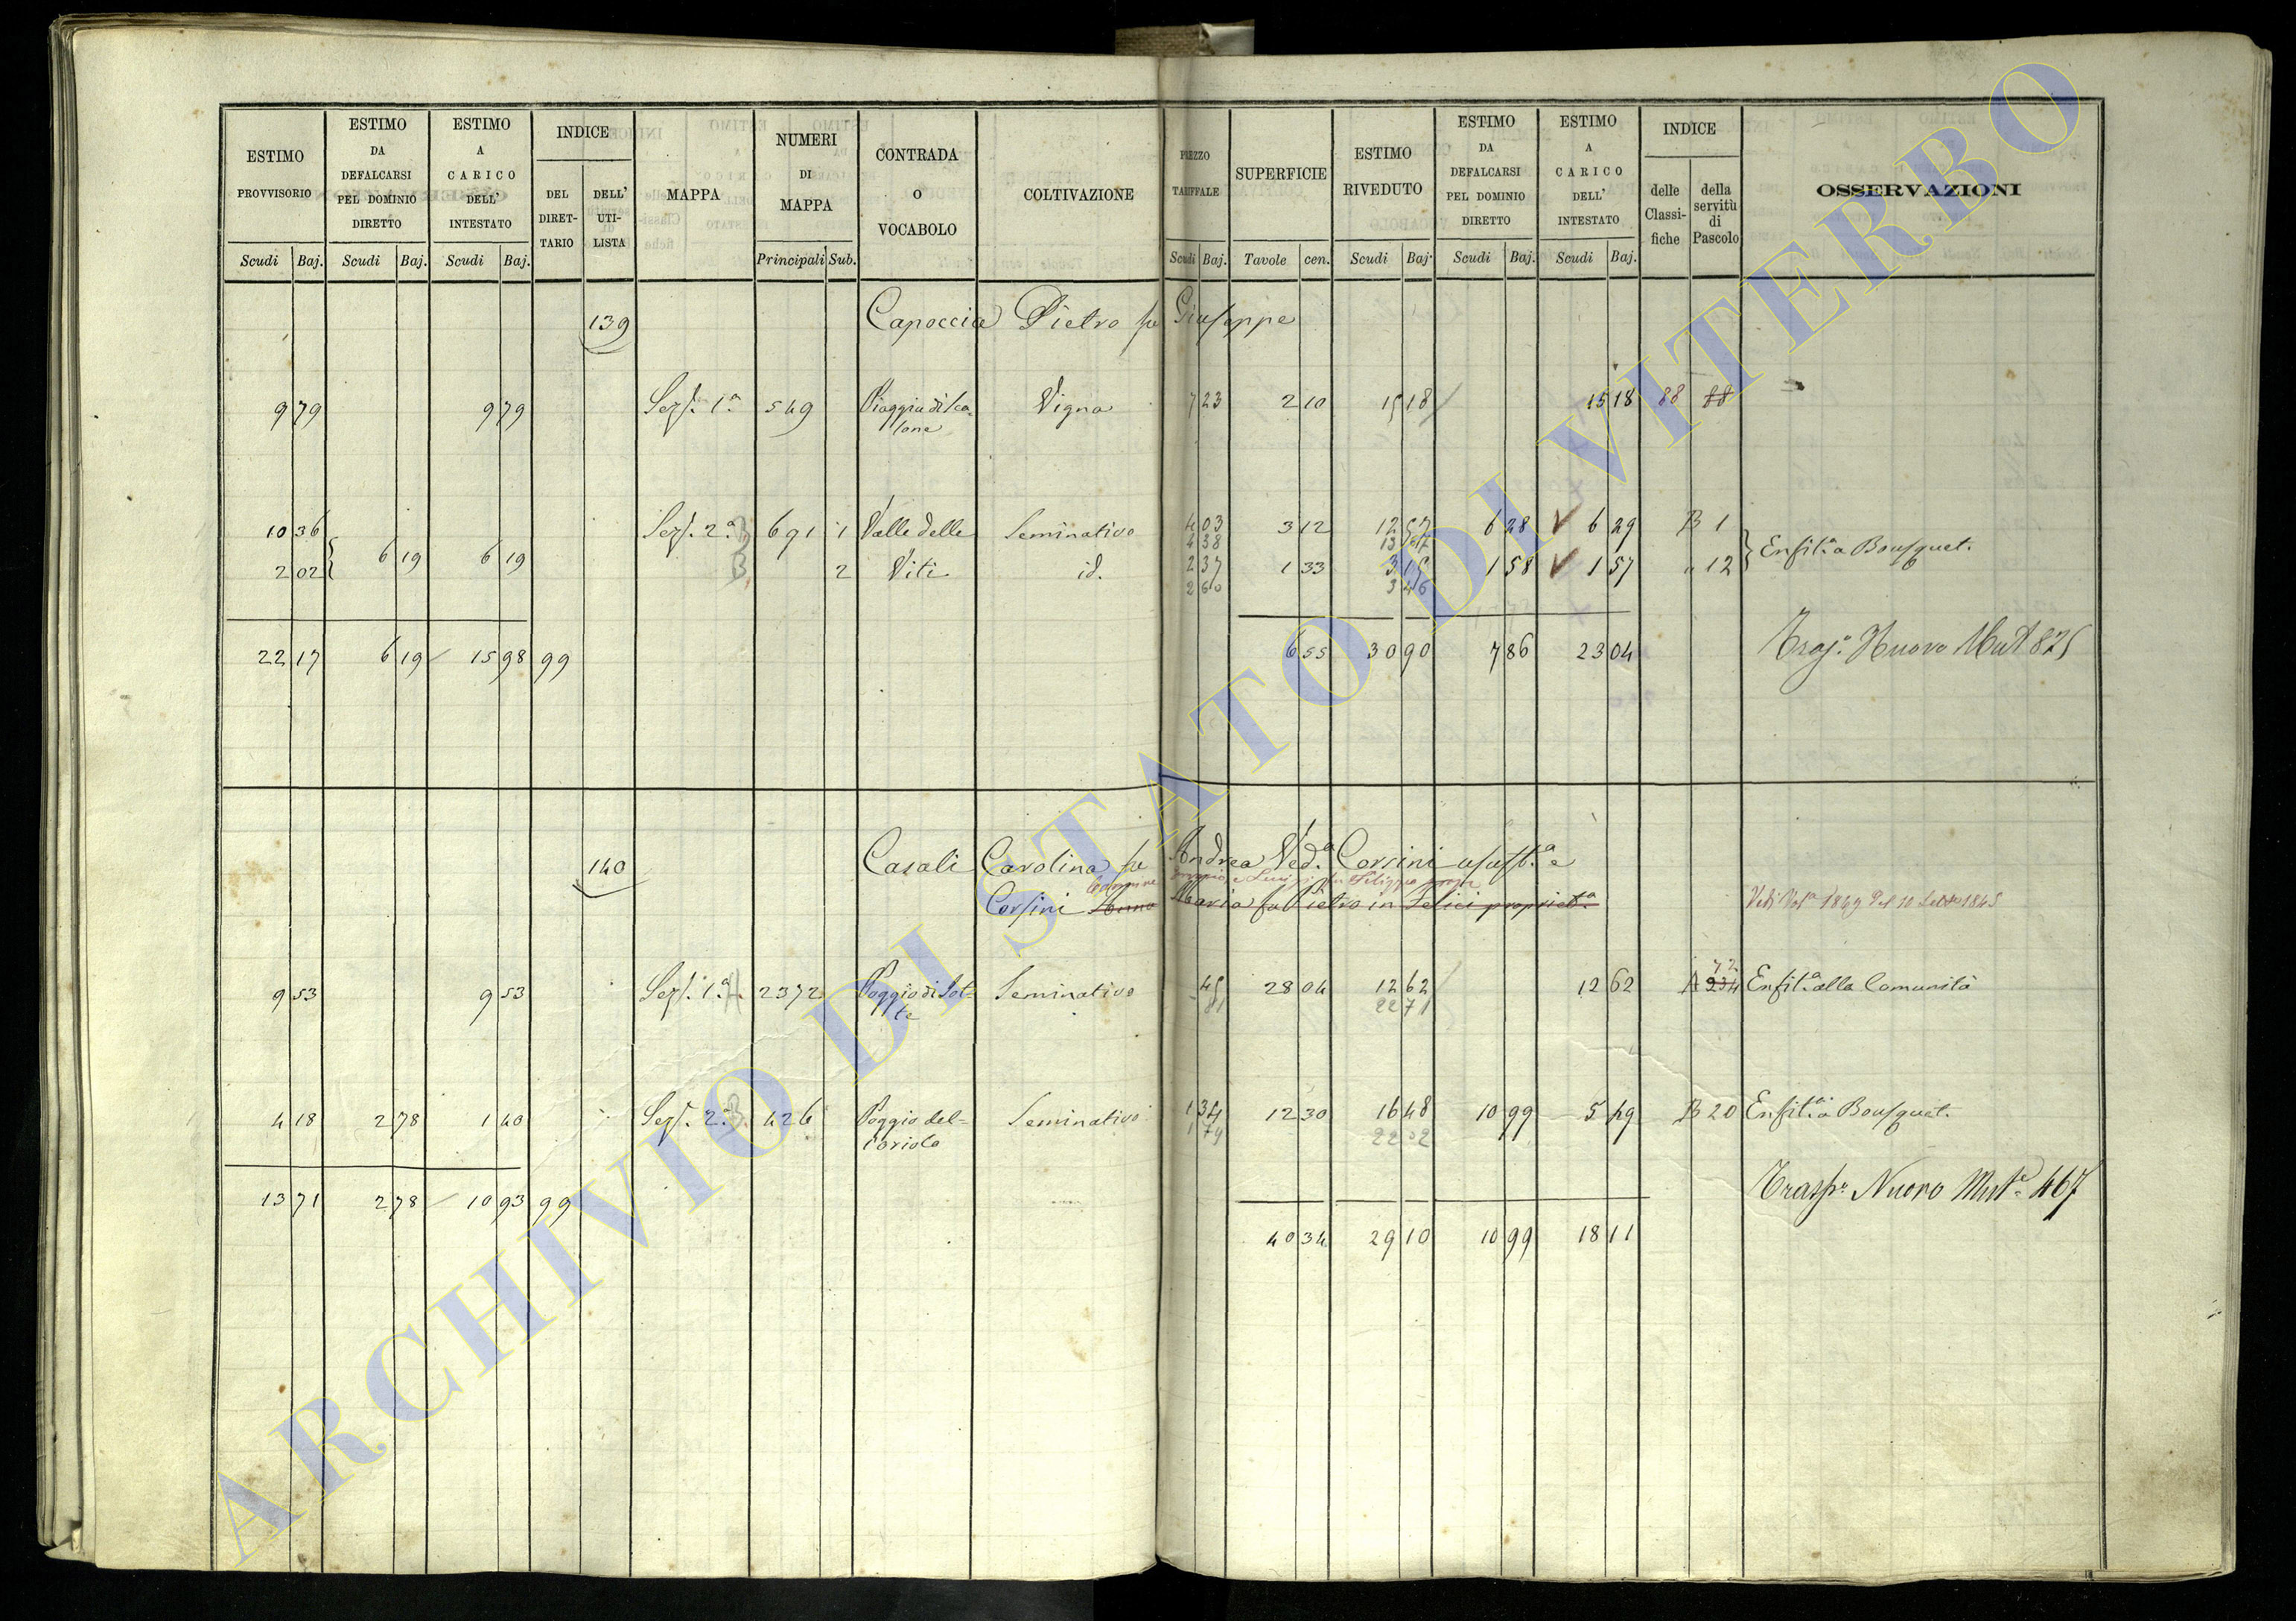 ESTIMO PROVVISORIO
ESTIMO DA DEFALCARSI PEL DOMINIO DIRETTO
ESTIMO A CARICO DELL' INTESTATO
INDICE
DEL DIRET-TARIO
DELL' UTI-LISTA
MAPPA
NUMERI DI MAPPA
CONTRADA O VOCABOLO
COLTIVAZIONE
PREZZO TARIFFALE
SUPERFICIE
ESTIMO RIVEDUTO
ESTIMO DA DEFALCARSI PEL DOMINIO DIRETTO
ESTIMO A CARICO DELL' INTESTATO
INDICE
delle Classi-fiche
della servitù di Pascolo
OSSERVAZIONI
Scudi Baj. Scudi Baj. Scudi Baj. Principali Sub. Scudi Baj. Tavole cen. Scudi Baj. Scudi Baj. Scudi Baj.
139 Capoccia Pietro fu Giuseppe
9 79 9 79 Sez. 1a 549 Piaggia di Sca- Vigna 7 23 2 10 15 18 15 18 88 88
lone
10 36 Sez. 2a B 691 1 Valle delle Seminativo 4 03 3 12 12 57 6 28 6 29 B 1
6 19 6 19 4 38 Enfit.a a Bousquet.
2 02 B 2 Viti id. 2 37 1 33 3 15 1 58 1 57 " 12
2 60 3 46
22 17 6 19 15 98 99 6 55 30 90 7 86 23 04 Nuovo Mut 825
140 Casali Carolina fu Andrea Ved.a Corsini usuft.a e
Corsini Maria fu Pietro in Felici propriet.a
9 53 9 53 Sez. 1a A 2372 Poggio di Sot- Seminativo 45 28 04 12 62 12 62 A 234 72 Enfit.a alla Comunità
te 81 22 71
4 18 2 78 1 40 Sez. 2a B 426 Poggio del- Seminativo 1 34 12 30 16 48 10 99 5 49 B 20 Enfit.a a Bousquet.
l'ariola 1 79 22 02
13 71 2 78 10 93 99 Trasp.o Nuovo Mut.e 467
40 34 29 10 10 99 18 11
ARCHIVIO DI STATO DI VITERBO